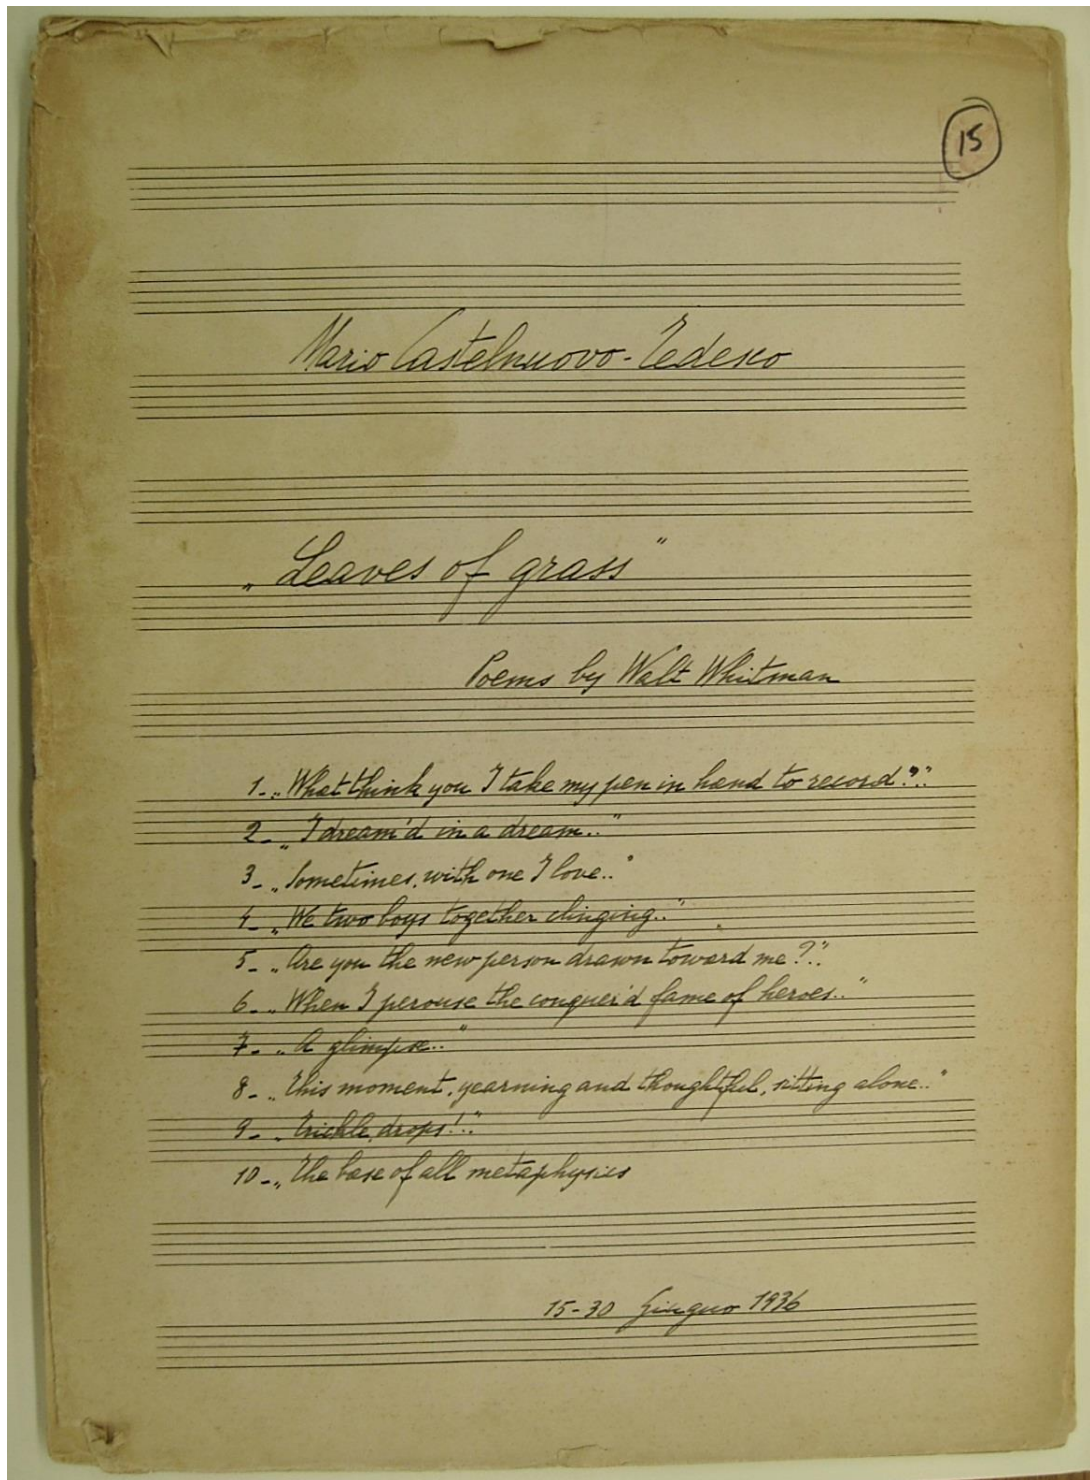 15
Mario Castelnuovo-Tedesco
„Leaves of grass"
Poems by Walt Whitman
1-„What think you I take my pen in hand to record?.."
2-„I dream'd in a dream.."
3-„Sometimes, with one I love.."
4-„We two boys together clinging.."
5-„Are you the new person drawn toward me?.."
6-„When I peruse the conquer'd fame of heroes.."
7-„A glimpse.."
8-„This moment, yearning and thoughtful, sitting alone.."
9-„Trickle, drops!.."
10-„The base of all metaphysics
15-30 Giugno 1936